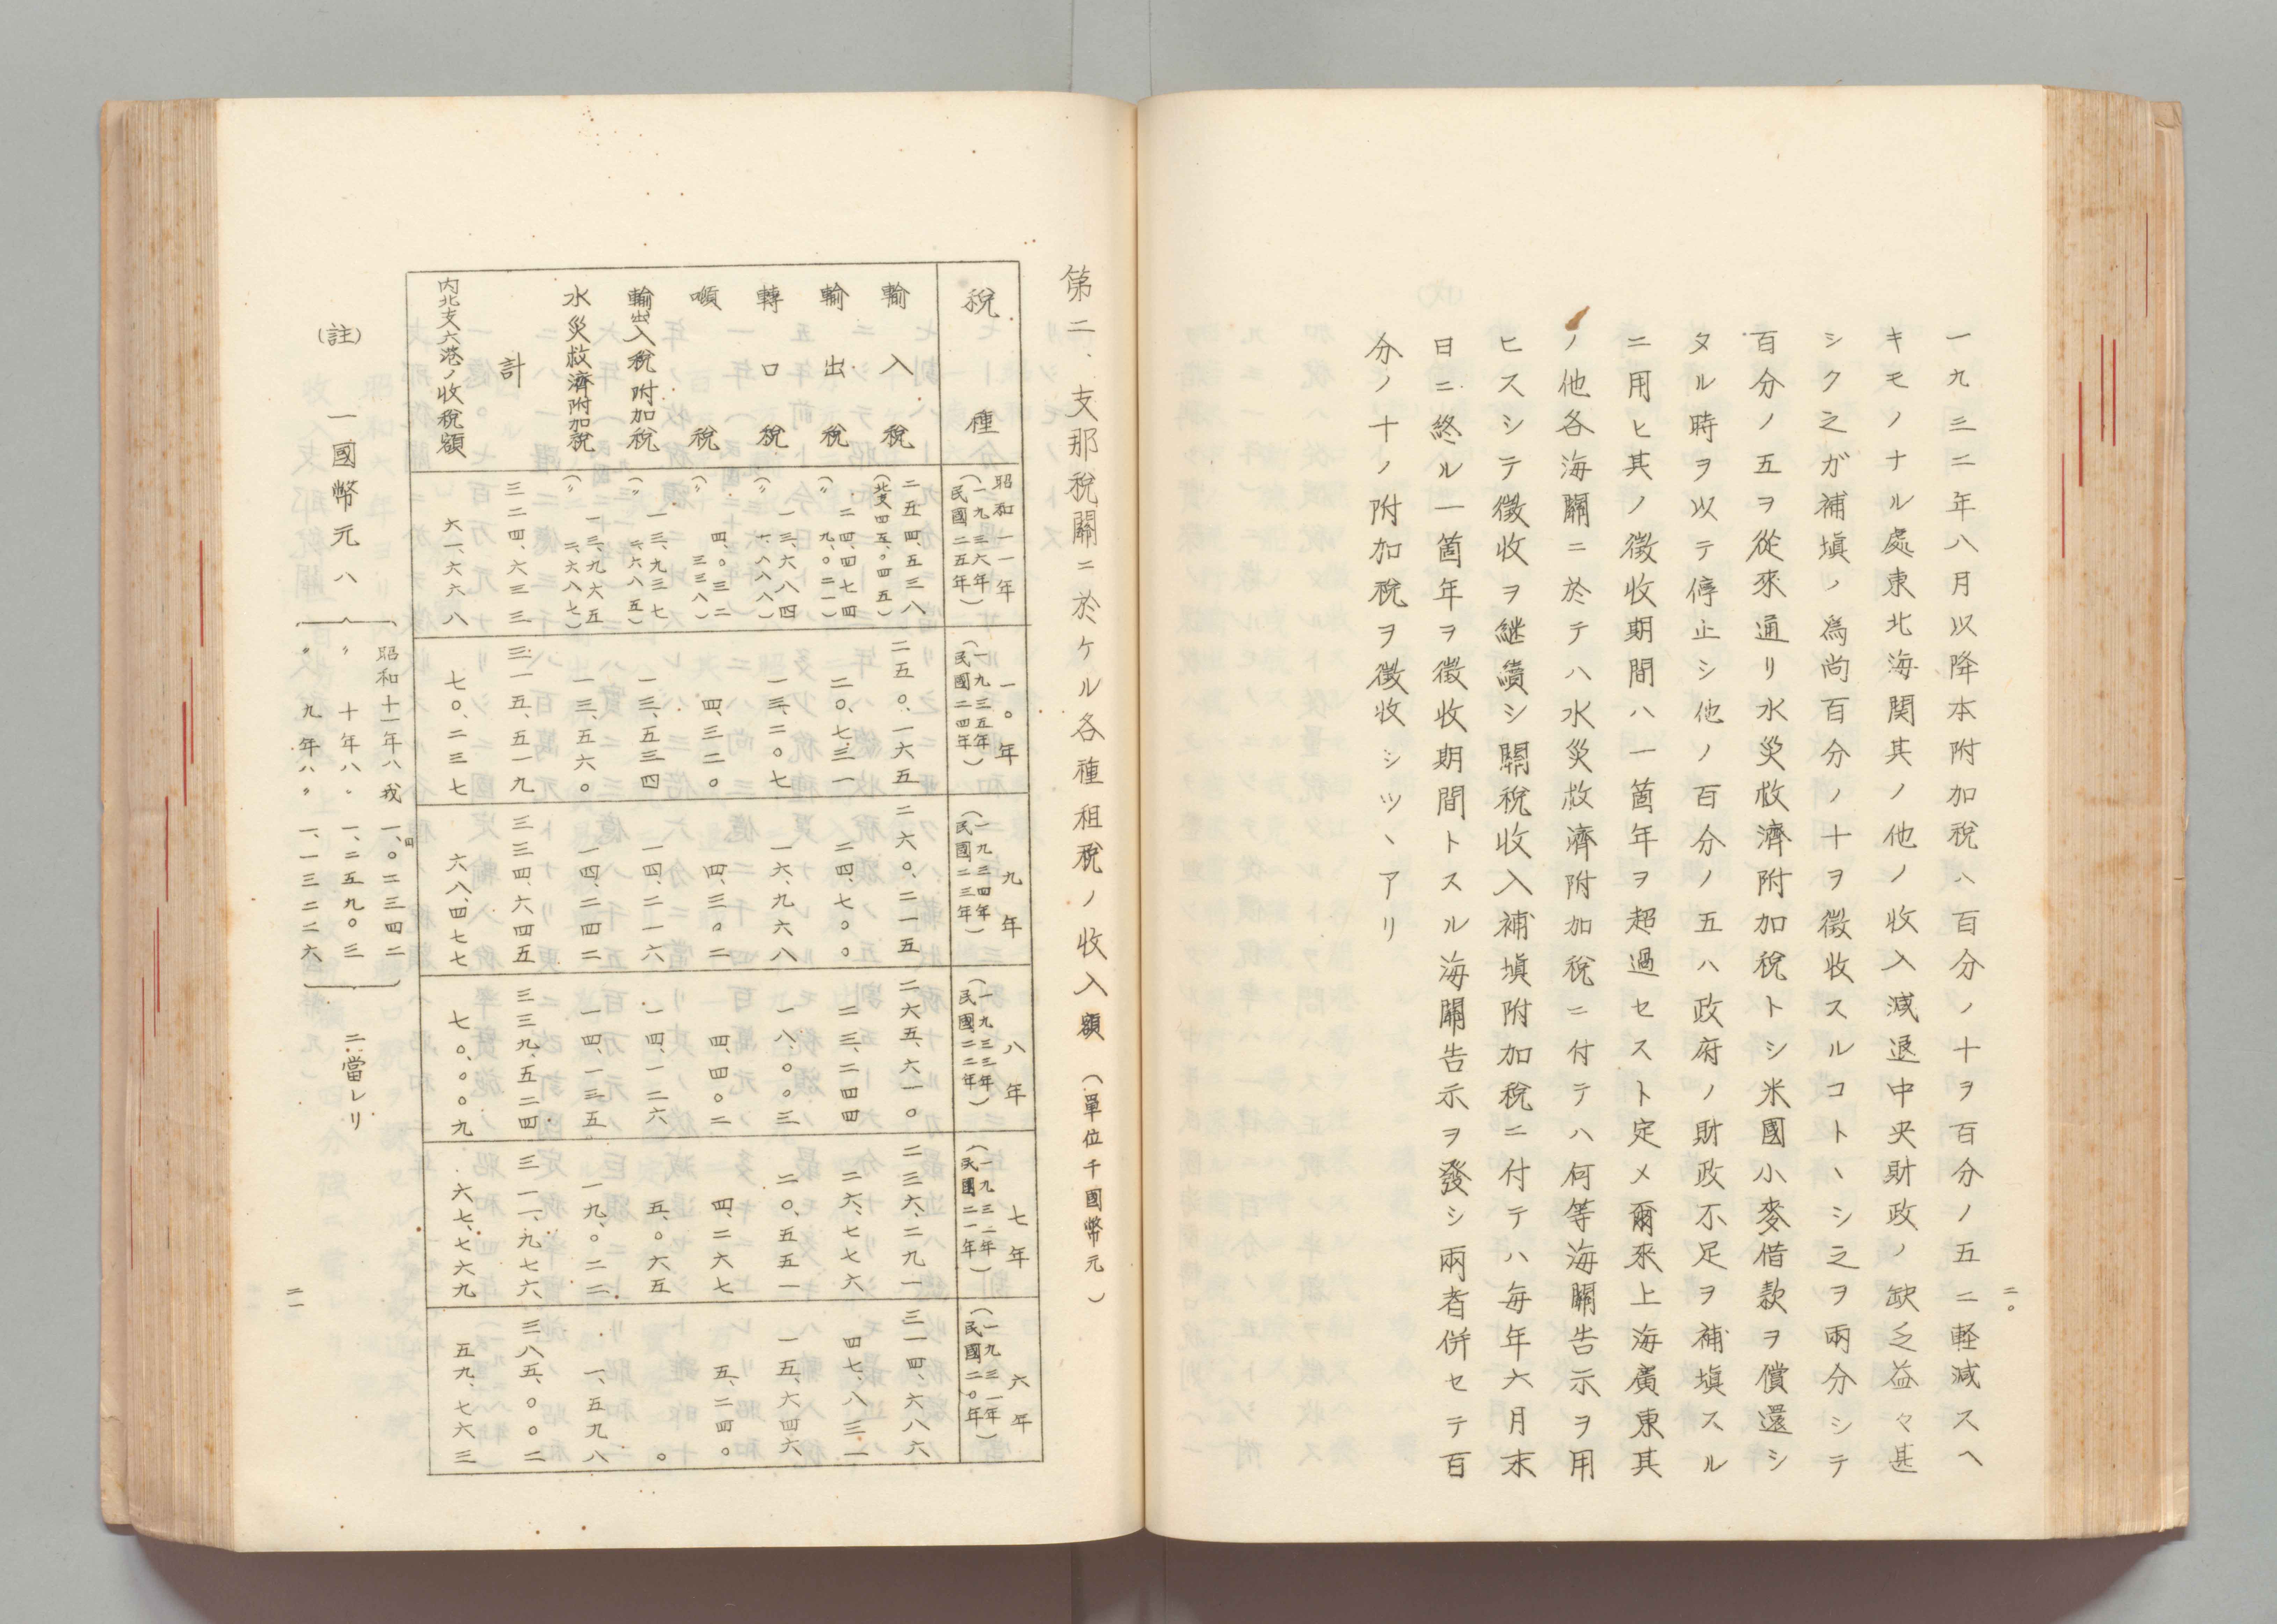 二〇
一九三二年八月以降本附加税ハ百分ノ十ヲ百分ノ五ニ軽減スヘ
キモノナル處東北海関其ノ他ノ收入減退中央財政ノ缺乏益々甚
シク之ガ補塡ノ爲尚百分ノ十ヲ徴收スルコトヽシ之ヲ兩分シテ
百分ノ五ヲ從來通リ水災救濟附加税トシ米國小麥借款ヲ償還シ
タル時ヲ以テ停止シ他ノ百分ノ五ハ政府ノ財政不足ヲ補塡スル
ニ用ヒ其ノ徴收期間ハ一箇年ヲ超過セスト定メ爾來上海廣東其
ノ他各海關ニ於テハ水災救濟附加税ニ付テハ何等海關告示ヲ用
ヒスシテ徴收ヲ継續シ關税收入補塡附加税ニ付テハ毎年六月末
日ニ終ル一箇年ヲ徴收期間トスル海關告示ヲ發シ兩者併セテ百
分ノ十ノ附加税ヲ徴收シツヽアリ
第二、支那税關ニ於ケル各種租税ノ收入額（單位千國幣元）
税種 昭和一一年（一九三六年）（民國二五年） 一〇年（一九三五年）（民國二四年） 九年（一九三四年）（民國二三年） 八年（一九三三年）（民國二二年） 七年（一九三二年）（民國二一年） 六年（一九三一年）（民國二〇年）
輸入税 二五四、五三八（北支四五、〇四五） 二五〇、一六五 二六〇、二一五 二六五、六一〇 二三六、二九一 三一四、六八六
輸出税 二四、四七四（〃九、〇二一） 二〇、七三一 二四、七〇〇 二三、二四四 二六、七七六 四七、八三一
轉口税 一三、六八四（〃一、八八八） 一三、二〇七 一六、九六八 一八、〇〇三 二〇、五五一 一五、六四六
噸税 四、〇三二（〃三三八） 四、三二〇 四、三〇二 四、四〇二 四、二六七 五、二四〇
輸出入税附加税 一三、九三七（〃二、六八五） 一三、五三四 一四、二一六 一四、一二六 五、〇六五 〇
水災救濟附加税 一三、九六五（〃二、六八七） 一三、五六〇 一四、二四二 一四、一三五 一九、〇二二 一、五九八
計 三二四、六三三 三一五、五一九 三三四、六四五 三三九、五二四 三一一、九七六 三八五、〇〇二
内北支六港ノ收税額 六一、六六八 七〇、二三七 六八、四七七 七〇、〇〇九 六七、七六九 五九、七六三
（註）一國幣元ハ
昭和十一年ハ我一、〇二三四二
〃十年ハ〃一、二五九〇三
〃九年ハ〃一、一三二二六
ニ當レリ
二一